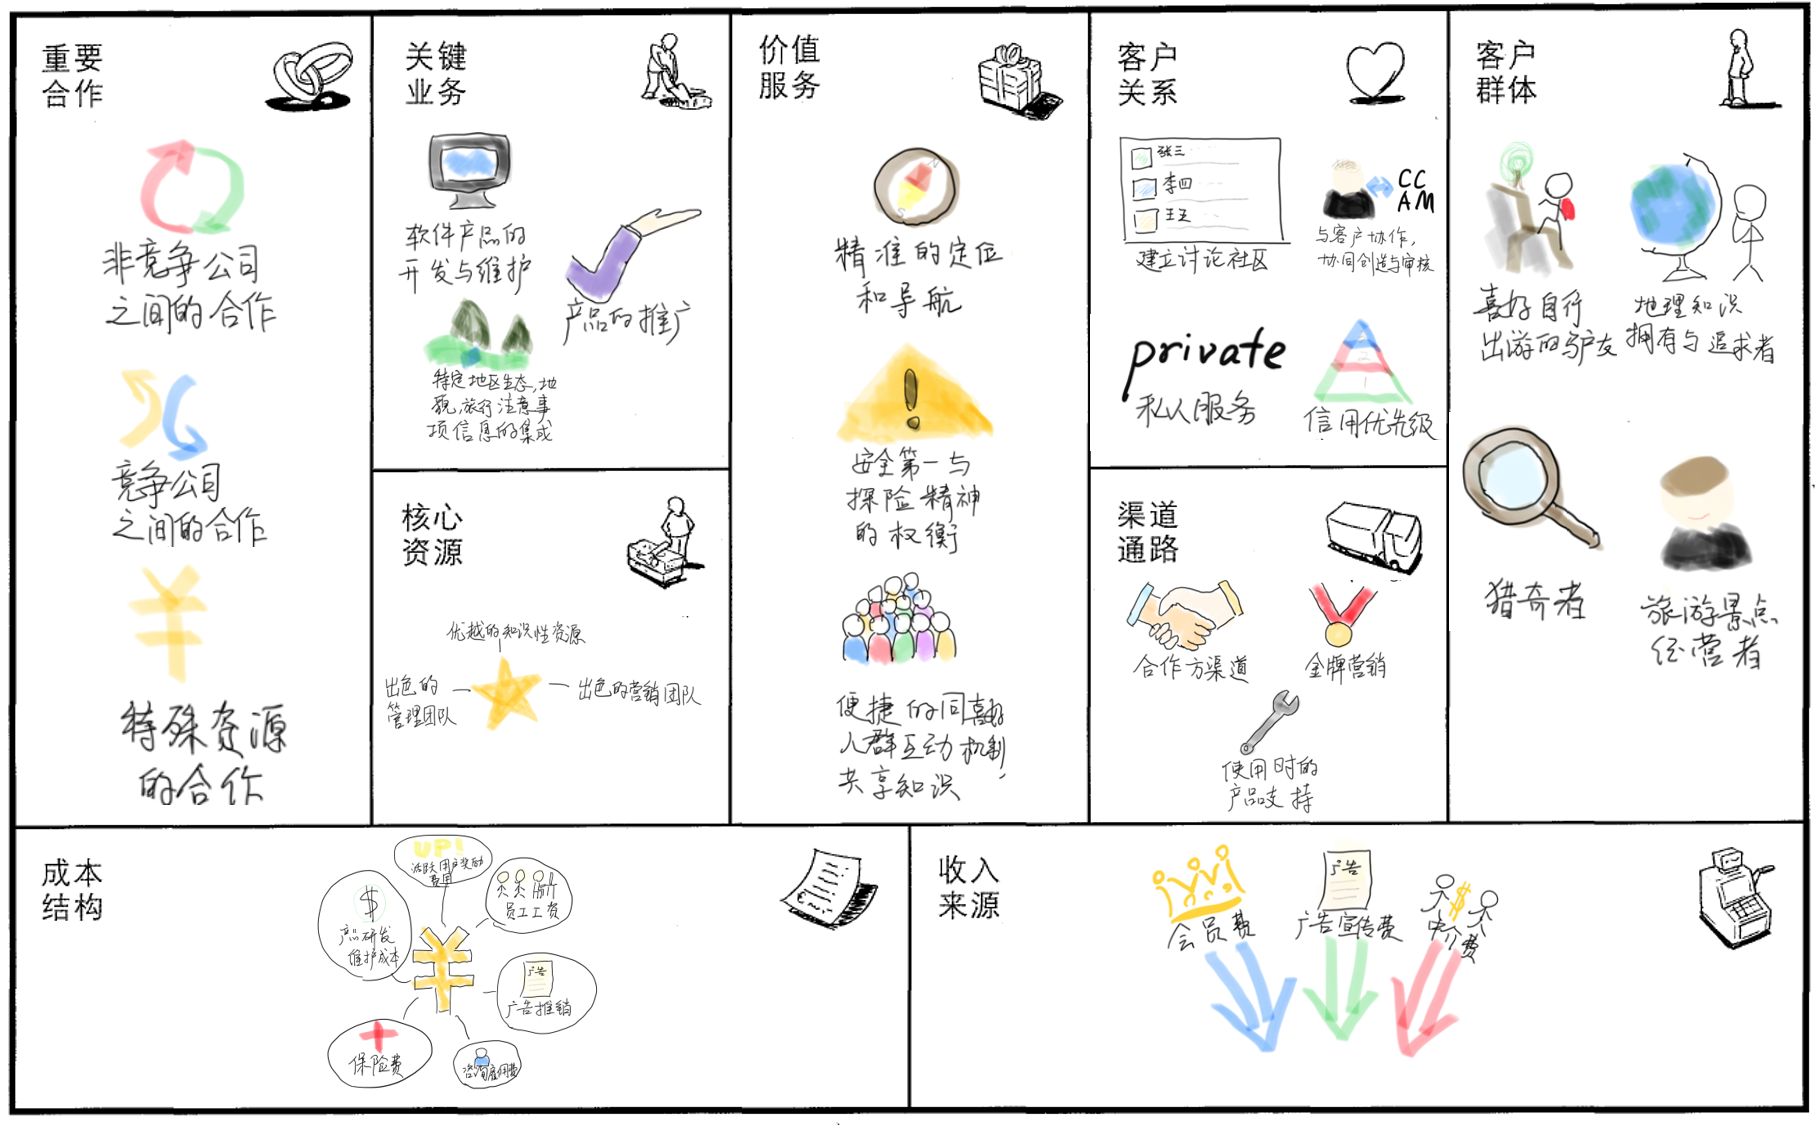 重要
合作
非竞争公司
之间的合作
竞争公司
之间的合作
¥
特殊资源
的合作
关键
业务
软件产品的
开发与维护
产品的推广
特定地区生态,地
貌,旅行注意事
项信息的集成
核心
资源
优越的知识性资源
出色的
管理团队
出色的营销团队
价值
服务
N
S
精准的定位
和导航
!
安全第一与
探险精神
的权衡
便捷的同好
人群互动机制
共享知识
客户
关系
张三
李四
王五
建立讨论社区
CC
AM
与客户协作,
协同创造与审核
private
私人服务
1
2
信用优先级
渠道
通路
合作方渠道
金牌营销
使用时的
产品支持
客户
群体
喜好自行
出游的驴友
地理知识
拥有与追求者
猎奇者
旅游景点
经营者
成本
结构
UP!
活跃用户奖励
费用
$
产品研发
维护成本
员工工资
¥
广告
广告推销
保险费
咨询雇佣费
收入
来源
会员费
广告
广告宣传费
$
中介费